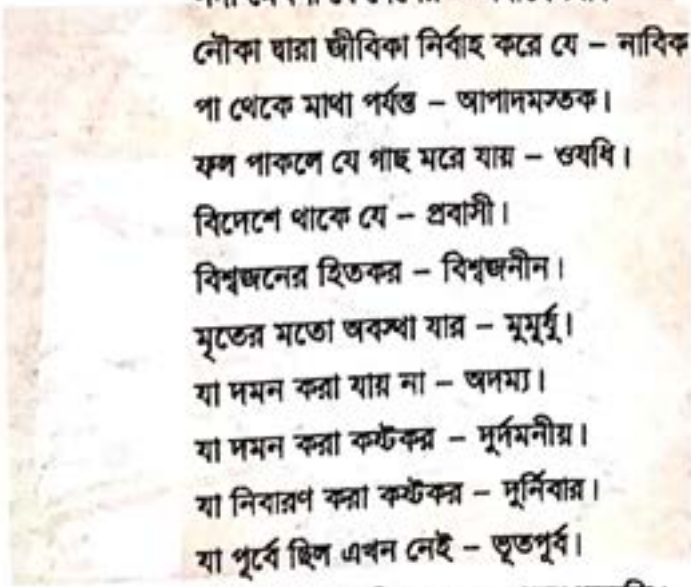 নৌকা দ্বারা জীবিকা নির্বাহ করে যে – নাবিক
পা থেকে মাথা পর্যন্ত – আপাদমস্তক।
ফল পাকলে যে গাছ মরে যায় – ওষধি।
বিদেশে থাকে যে – প্রবাসী।
বিশ্বজনের হিতকর – বিশ্বজনীন।
মৃতের মতো অবস্থা যার – মুমূর্ষু।
যা দমন করা যায় না – অদম্য।
যা দমন করা কষ্টকর – দুর্দমনীয়।
যা নিবারণ করা কষ্টকর – দুর্নিবার।
যা পূর্বে ছিল এখন নেই – ভূতপূর্ব।